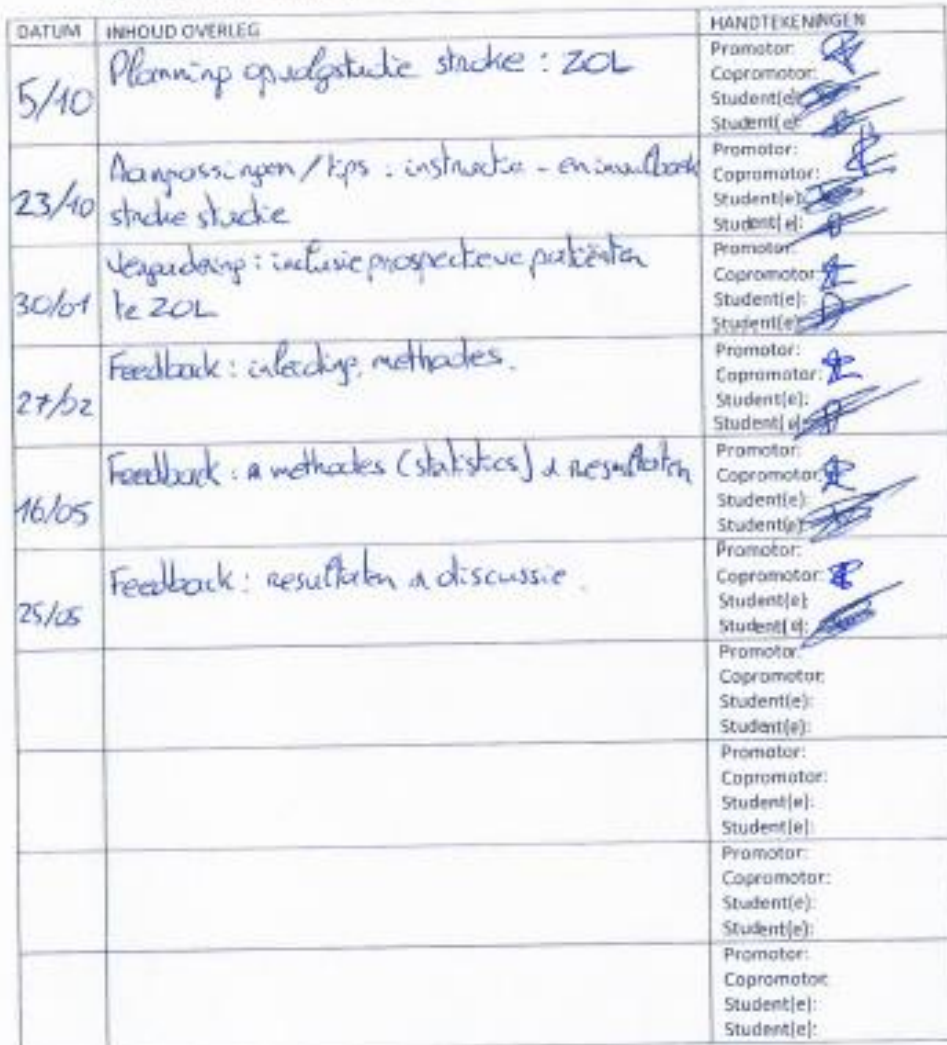 DATUM INHOUD OVERLEG HANDTEKENINGEN
5/10 Planning opvolgstudie stroke : ZOL
Promotor:
Copromotor:
Student(e):
Student(e):
23/10 Aanpassingen / tips : instructie - en invulboek
stroke studie
Promotor:
Copromotor:
Student(e):
Student(e):
30/01 Vergadering : inclusie prospectieve patiënten
te ZOL
Promotor:
Copromotor:
Student(e):
Student(e):
27/02 Feedback : inleiding, methodes.
Promotor:
Copromotor:
Student(e):
Student(e):
16/05 Feedback : methodes (statistics) & resultaten
Promotor:
Copromotor:
Student(e):
Student(e):
25/05 Feedback : resultaten & discussie.
Promotor:
Copromotor:
Student(e):
Student(e):
Promotor:
Copromotor:
Student(e):
Student(e):
Promotor:
Copromotor:
Student(e):
Student(e):
Promotor:
Copromotor:
Student(e):
Student(e):
Promotor:
Copromotor:
Student(e):
Student(e):